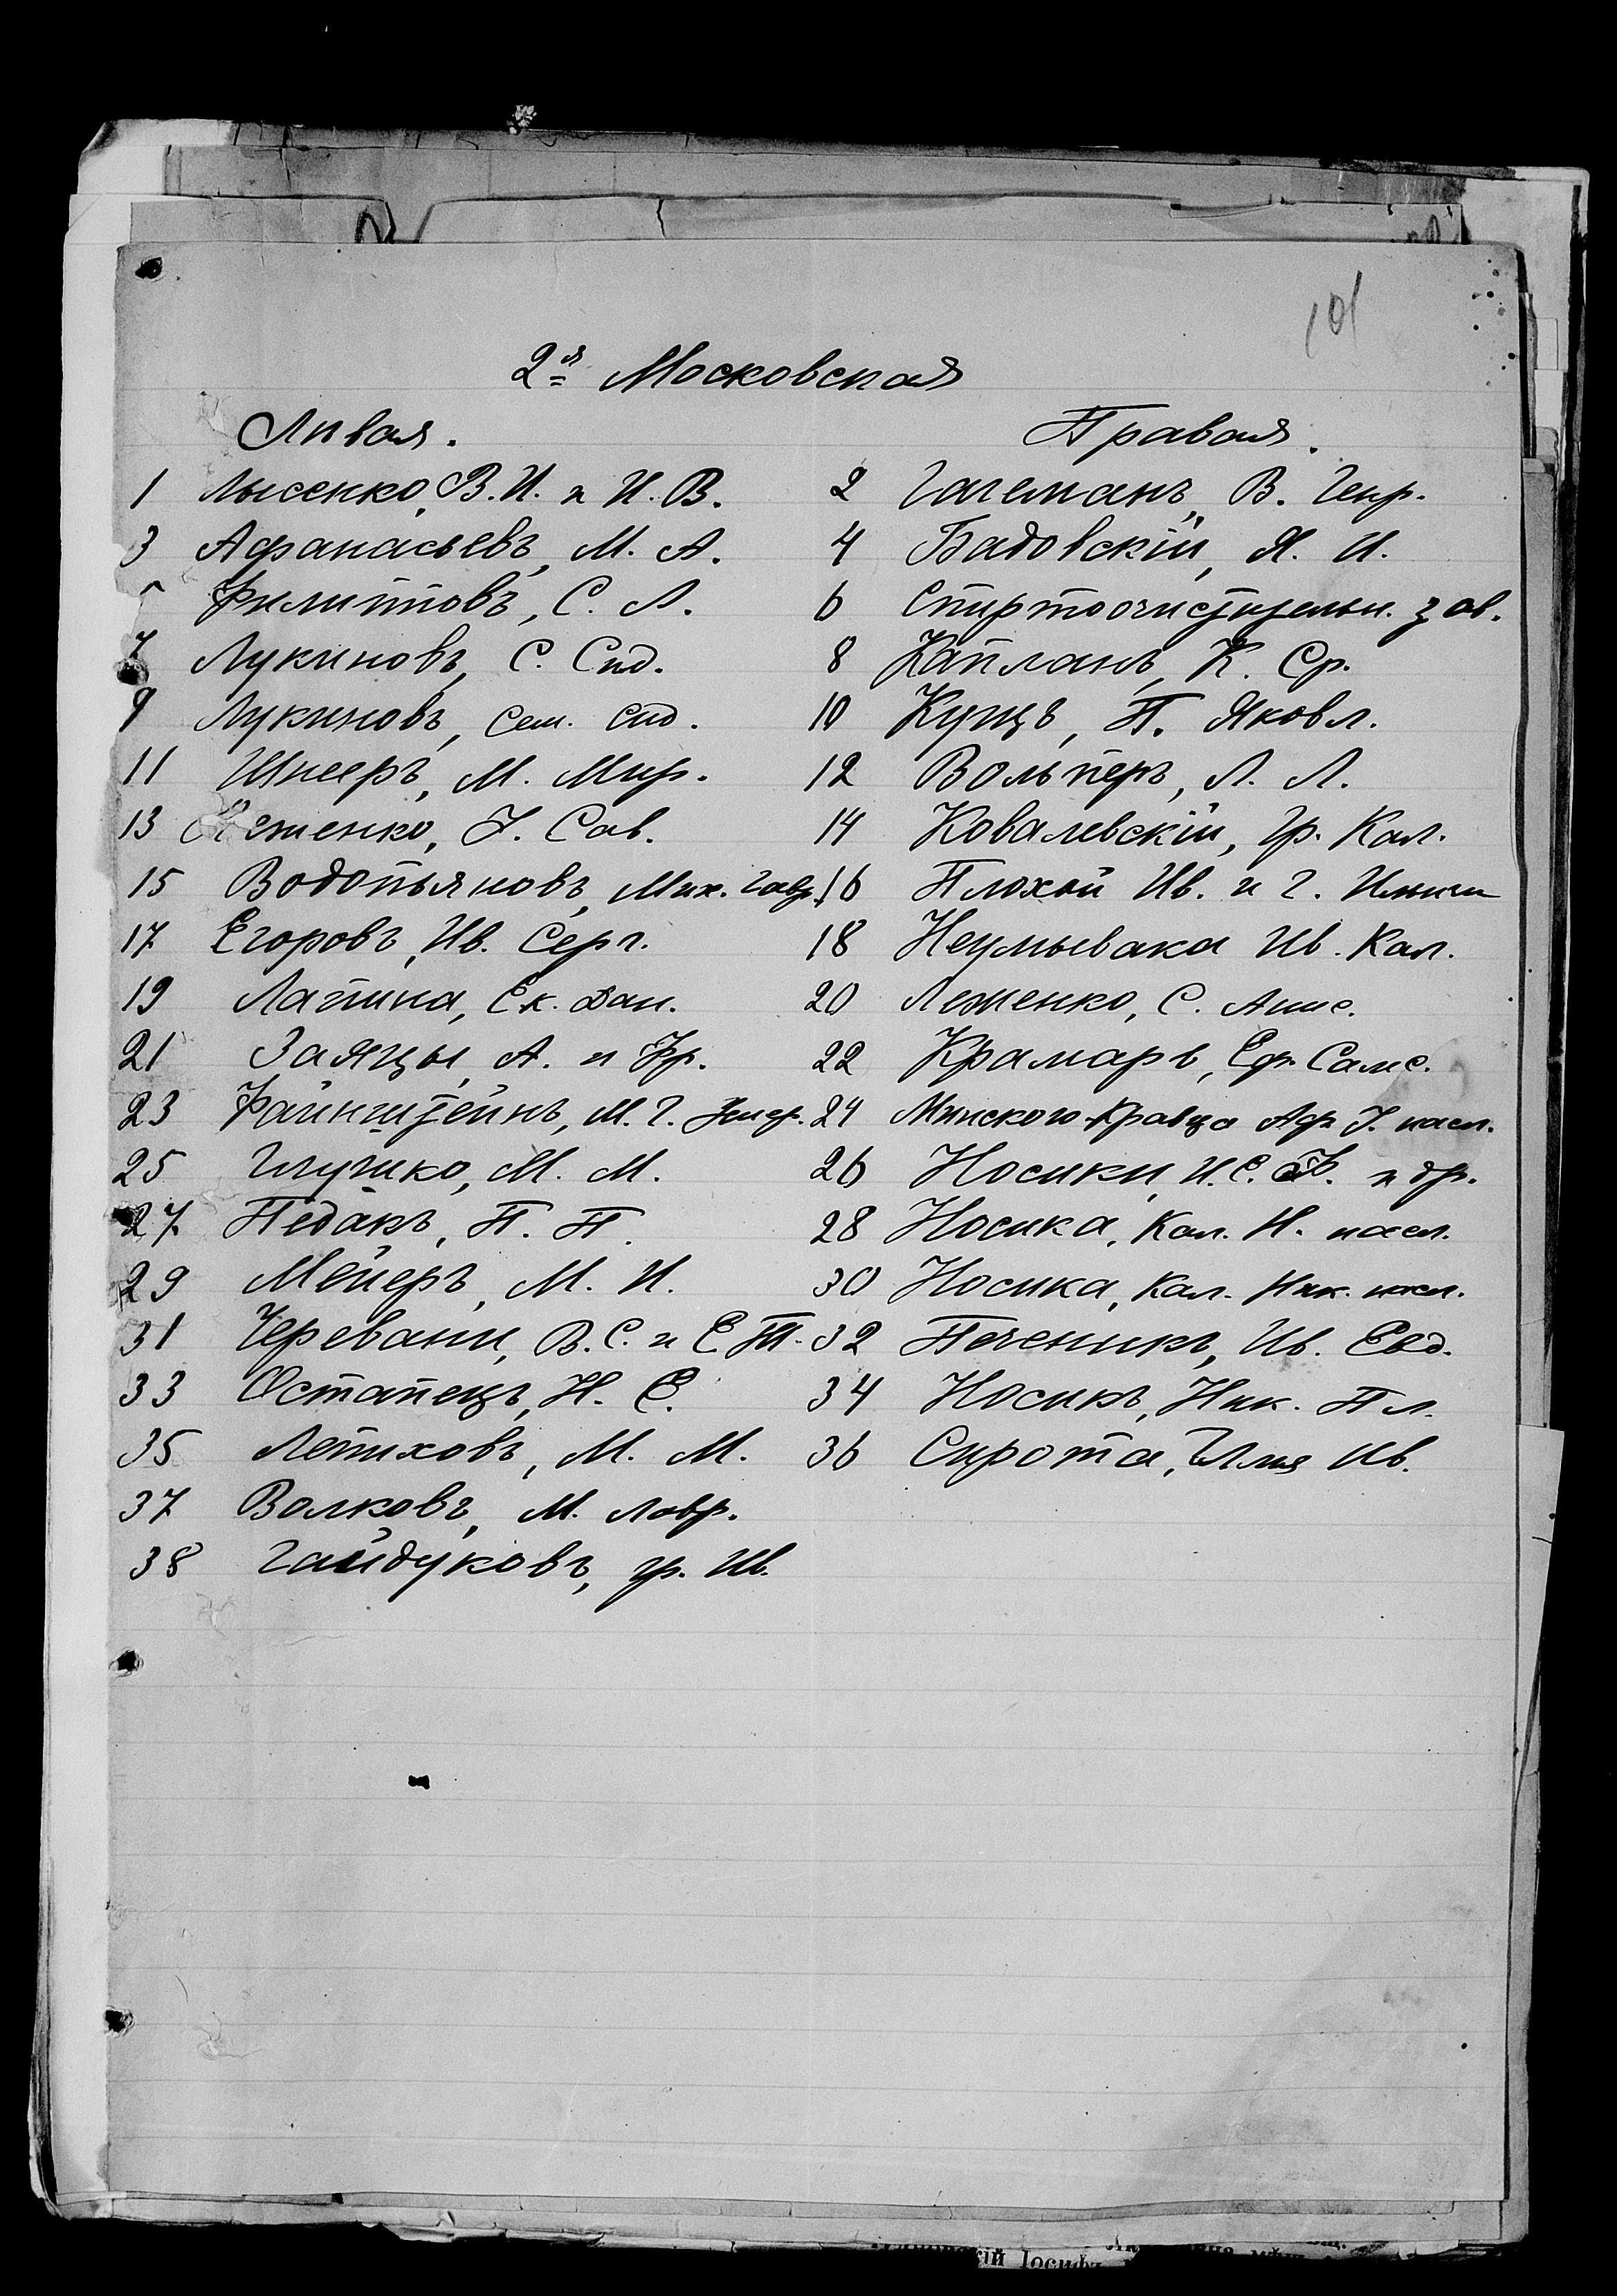 101
2я Московская
Лѣвая. Правая.
1 Лысенко, В. И. и И. В. 2 Гагеманъ, В. Генр.
3 Афанасьевъ, М. А. 4 Бадовскій, Я. И.
5 Филипповъ, С. Л. 6 Спиртоочистительн. зав.
7 Лукиновъ, С. Сид. 8 Капланъ, К. Ср.
9 Лукиновъ, Сем. Сид. 10 Кунцъ, П. Яковл.
11 Шнееръ, М. Мир. 12 Вольперъ, Л. Л.
13 Сав. 14 Ковалевскій, Гр. Кал.
15 Водопьяновъ, Мих. Гавр. 16 Плохой Ив. и Г. Ильичи
17 Егоровъ, Ив. Серг. 18 Неумывака Ив. Кал.
19 Лапина, Ек. Дан. 20 Леженко, С. Анис.
21 Заяцы, А. и Гр. 22 Крамарь, Еф. Самс.
23 Файнштейнъ, М. Г. 24 Минского-Кравца насл.
25 Глушко, М. М. 26 Носики, И. С. и др.
27 Педакъ, П. П. 28 Носика, Кал. Н. насл.
29 Мейеръ, М. И. 30 Носика, Кал. Ник. насл.
31 Черевани, В. С. и Е. Т. 32 Печеникъ, Ив. Евд.
33 Остапецъ, Н. Е. 34 Носикъ, Ник. Пл.
35 Летиховъ, М. М. 36 Сирота, Илья Ив.
37 Волковъ, М. Лавр.
38 Гайдуковъ, Гр. Ив.